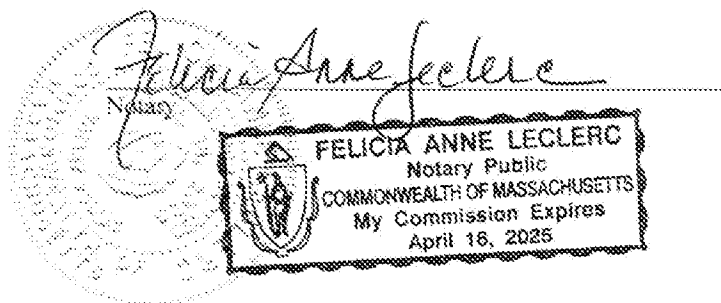 Felicia Anne Leclerc
Notary
FELICIA ANNE LECLERC
Notary Public
COMMONWEALTH OF MASSACHUSETTS
My Commission Expires
April 16, 2025